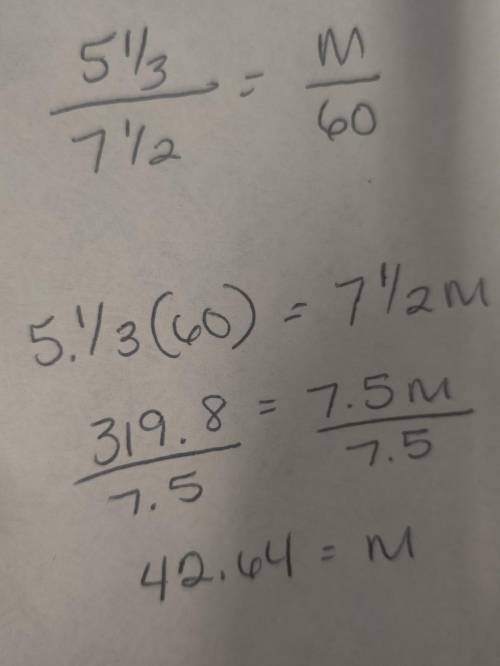 5 1/3 / 7 1/2 = M / 60
5. 1/3 (60) = 7 1/2 M
319.8 / 7.5 = 7.5M / 7.5
42.64 = M